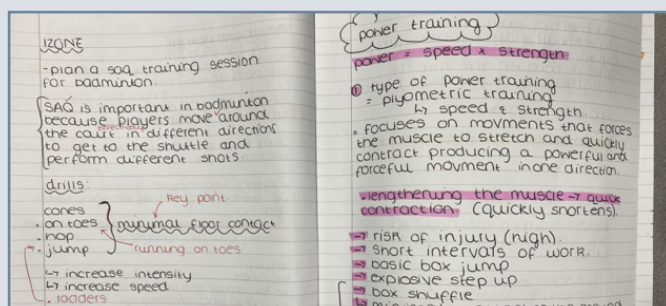 IZONE
-plan a saq training session
for badminton.
SAQ is important in badminton
because players move around
effectively
the court in different directions
to get to the shuttle and
perform different shots.
drills:
key point.
cones
on toes
minimal floor contact
hop
jump
running on toes
↳ increase intensity
↳ increase speed
. ladders
power training
power = speed x strength
① type of power training
= plyometric training
↳ speed & strength.
. focuses on movments that forces
the muscle to stretch and quickly
contract producing a powerful and
forceful movment in one direction.
. lengthening the muscle → quick
contraction (quickly shortens).
→ risk of injury (high).
→ short intervals of work.
→ basic box jump
→ explosive step up
→ box shuffle